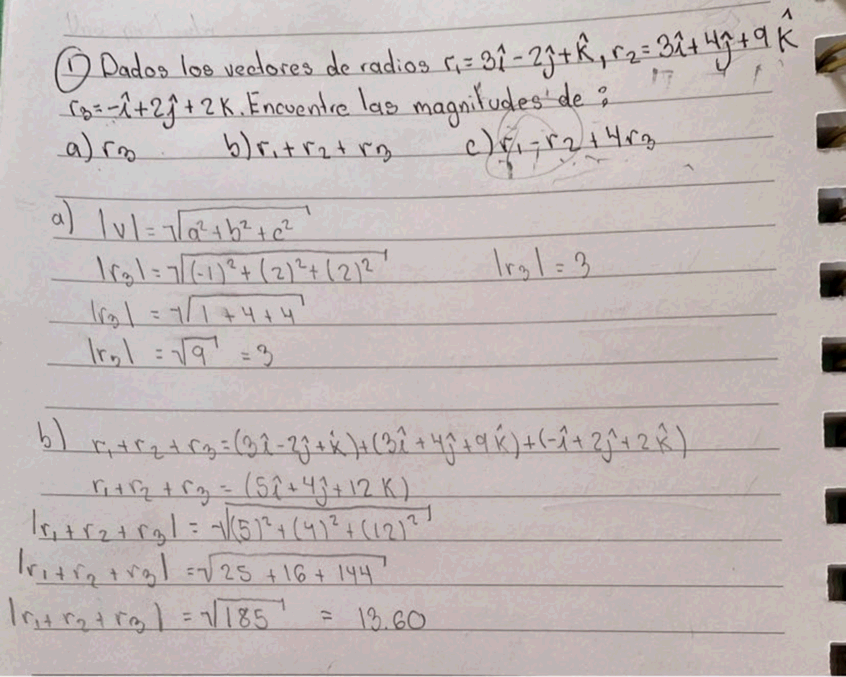 ① Dados los vectores de radios r₁=3î-2ĵ+k̂, r₂=3î+4ĵ+9k̂
r₃=-î+2ĵ+2K. Encuentre las magnitudes de:
a) r₃ b) r₁+r₂+r₃ c) r₁-r₂+4r₃
a) |v|=√a²+b²+c²
|r₃|=√(-1)²+(2)²+(2)² |r₃|=3
|r₃|=√1+4+4
|r₃|=√9 =3
b) r₁+r₂+r₃=(3î-2ĵ+k̂)+(3î+4ĵ+9k̂)+(-î+2ĵ+2k̂)
r₁+r₂+r₃=(5î+4ĵ+12K)
|r₁+r₂+r₃|=√(5)²+(4)²+(12)²
|r₁+r₂+r₃|=√25+16+144
|r₁+r₂+r₃|=√185 = 13.60